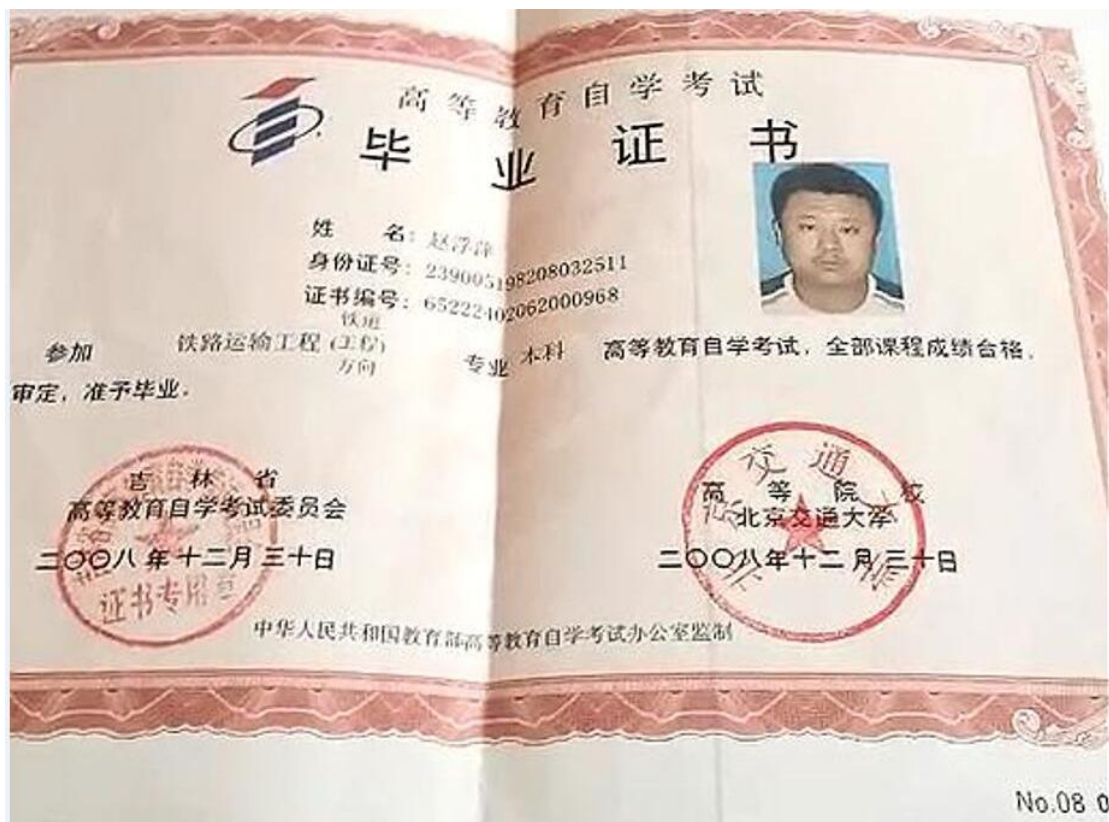 高等教育自学考试
毕业证书
姓 名：赵浮萍
身份证号：239005198208032511
证书编号：65222402062000968
参加 铁路运输工程 (铁运工程方向) 专业 本科 高等教育自学考试，全部课程成绩合格，
审定，准予毕业．
吉林省
高等教育自学考试委员会
二〇〇八年十二月三十日
证书专用章
高等院校
北京交通大学
二〇〇八年十二月三十日
北京交通大学
中华人民共和国教育部高等教育自学考试办公室监制
No.08 0